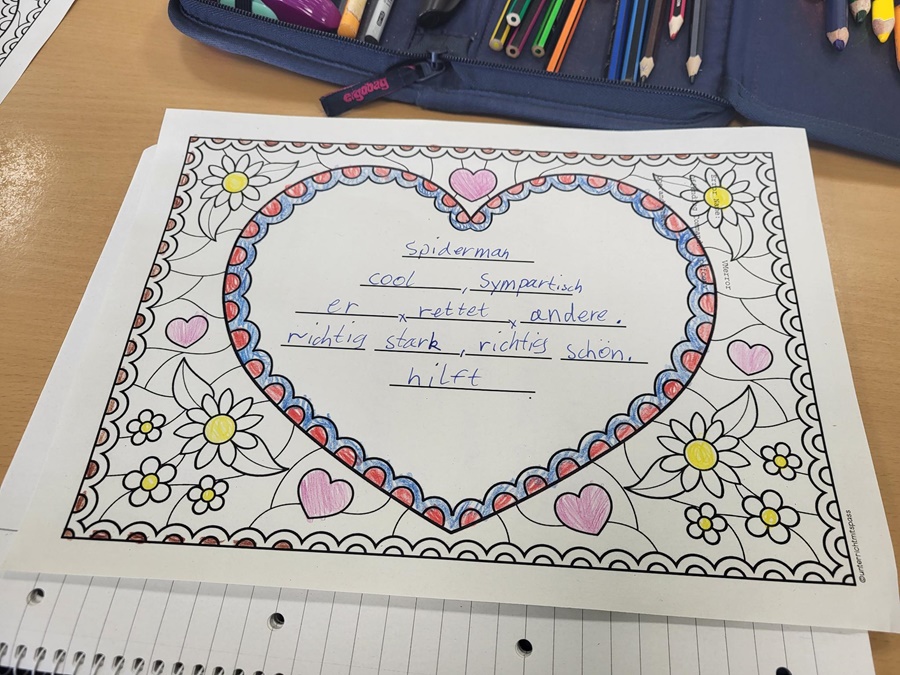 ergobag
Spiderman
cool, Sympartisch
er x rettet x andere.
richtig stark, richtig schön.
hilft.
©unterrichtmitspass